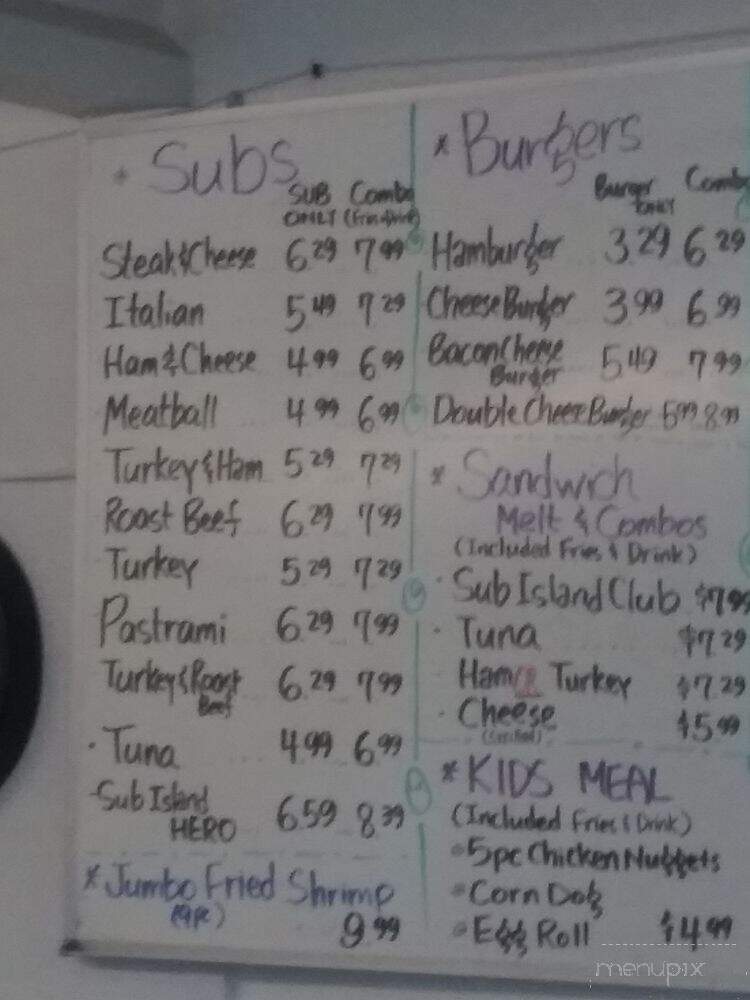 * Subs
SUB ONLY Combo (Fries & Drink)
Steak & Cheese 6.29 7.99
Italian 5.49 7.29
Ham & Cheese 4.99 6.99
Meatball 4.99 6.99
Turkey & Ham 5.29 7.29
Roast Beef 6.29 7.99
Turkey 5.29 7.29
Pastrami 6.29 7.99
Turkey & Roast Beef 6.29 7.99
· Tuna 4.99 6.99
· Sub Island HERO 6.59 8.39
* Jumbo Fried Shrimp
9.99
* Burgers
Burger ONLY Combo
Hamburger 3.29 6.29
Cheese Burger 3.99 6.99
Bacon Cheese Burger 5.49 7.99
Double Cheese Burger 5.99 8.99
* Sandwich
Melt & Combos
(Included Fries & Drink)
· Sub Island Club $7.99
· Tuna $7.29
· Ham & Turkey $7.29
· Cheese $5.99
* KIDS MEAL
(Included Fries & Drink)
• 5pc Chicken Nuggets
• Corn Dog
• Egg Roll $4.99
menupix